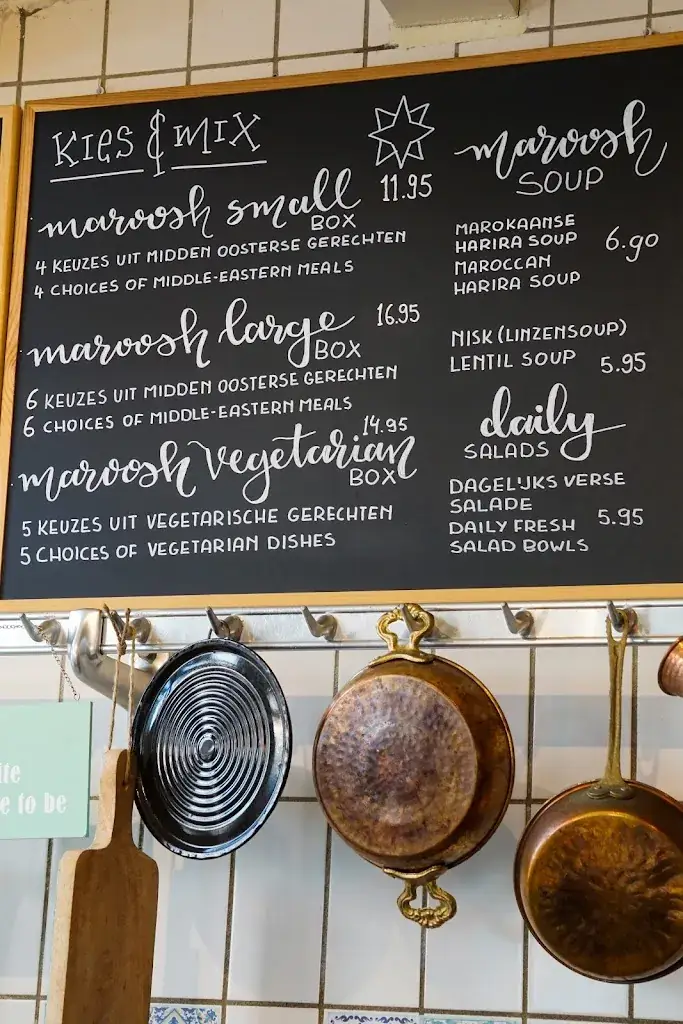 KIES & MIX
maroosh small 11.95
BOX
4 KEUZES UIT MIDDEN OOSTERSE GERECHTEN
4 CHOICES OF MIDDLE-EASTERN MEALS
maroosh large 16.95
BOX
6 KEUZES UIT MIDDEN OOSTERSE GERECHTEN
6 CHOICES OF MIDDLE-EASTERN MEALS
14.95
maroosh vegetarian
BOX
5 KEUZES UIT VEGETARISCHE GERECHTEN
5 CHOICES OF VEGETARIAN DISHES
maroosh
SOUP
MAROKAANSE
HARIRA SOUP 6.90
MAROCCAN
HARIRA SOUP
NISK (LINZENSOUP)
LENTIL SOUP 5.95
daily
SALADS
DAGELIJKS VERSE
SALADE
DAILY FRESH 5.95
SALAD BOWLS
e to be